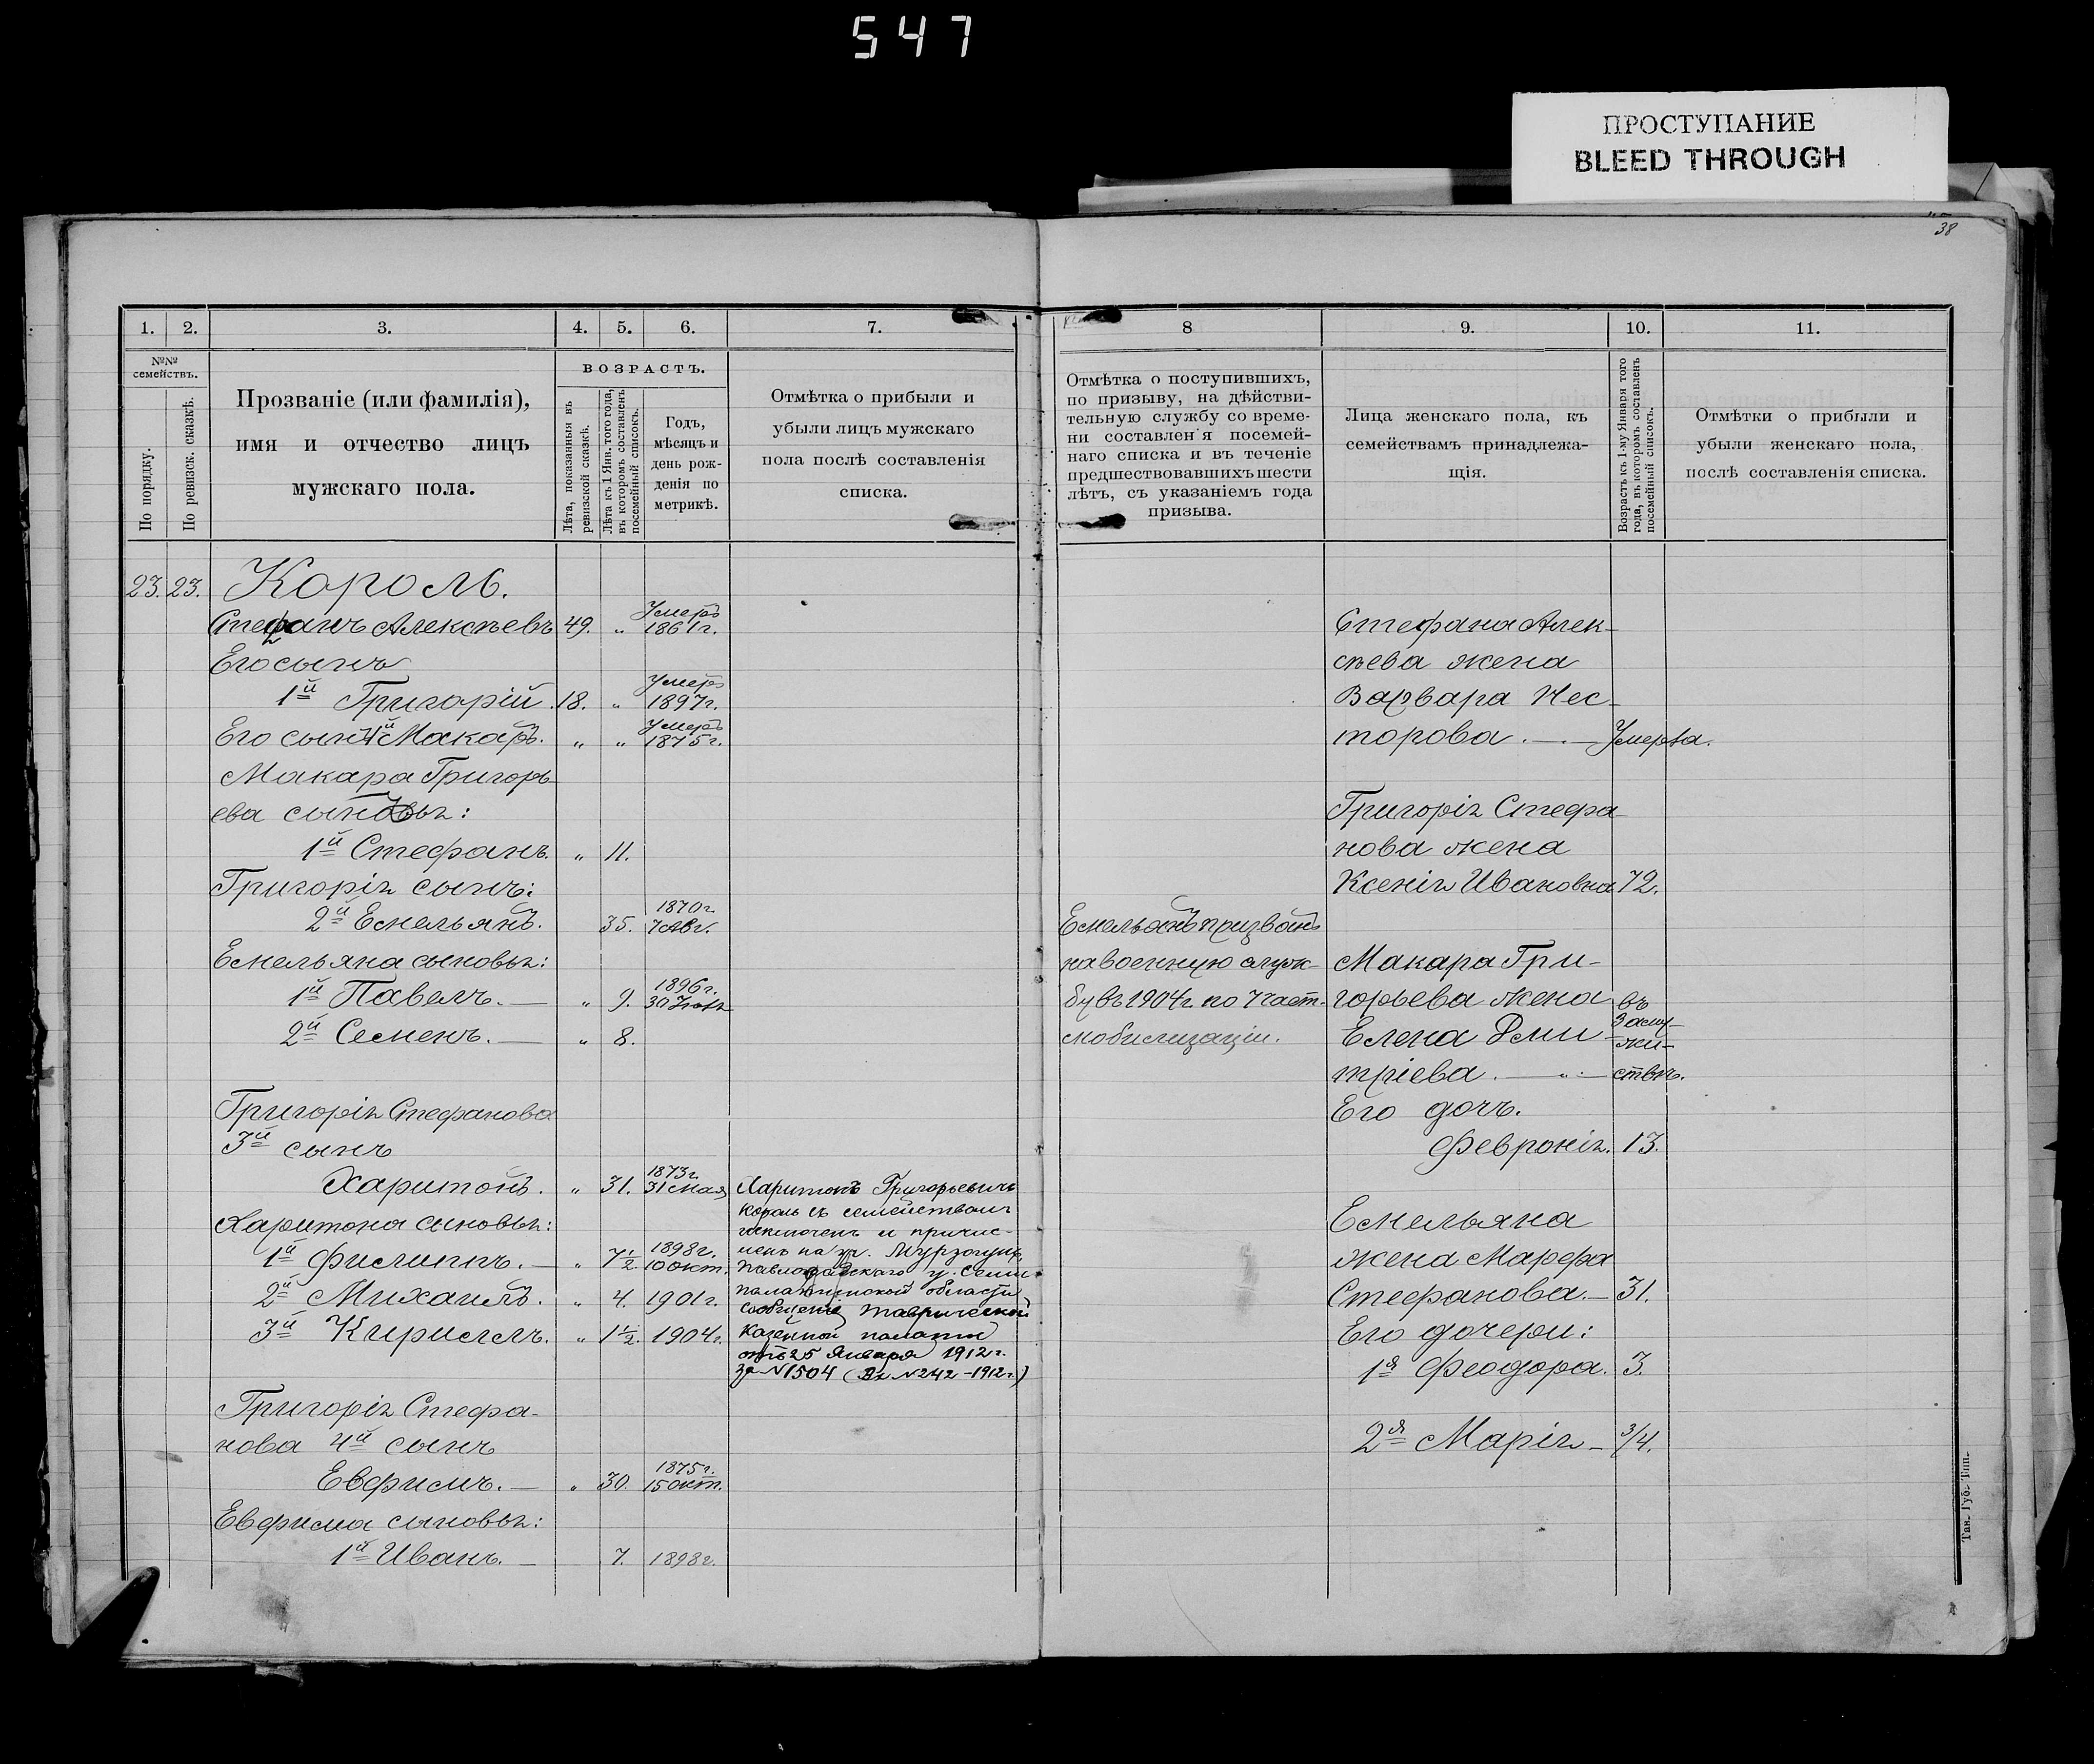 547
ПРОСТУПАНИЕ
BLEED THROUGH
38
1. 2. 3. 4. 5. 6. 7.
№№ семействъ.
По порядку.
По ревизск. сказкѣ.
Прозваніе (или фамилія),
имя и отчество лицъ
мужскаго пола.
ВОЗРАСТЪ.
Лѣта, показанныя въ
ревизской сказкѣ.
Лѣта къ 1 Янв. того года,
въ которомъ составленъ
посемейный списокъ.
Годъ,
мѣсяцъ и
день рож-
денія по
метрикѣ.
Отмѣтка о прибыли и
убыли лицъ мужскаго
пола послѣ составленія
списка.
23. 23. Король.
Стефанъ Алексѣевъ 49. „ Умеръ 1861 г.
Его сынъ
1й Григорій. 18. „ Умеръ 1897 г.
Его сынъ 1й Макаръ. „ „ Умеръ 1875 г.
Макара Григорь
ева сыновья:
1й Стефанъ. „ 11.
Григорія сынъ:
2й Емельянъ. 35. 1870 г. 7 Авг.
Емельяна сыновья:
1й Павелъ. — „ 9. 1896 г. 30
2й Семенъ. — „ 8.
Григорія Стефанова
3й сынъ
Харитонъ. „ 31. 1873 г. 31 мая
Харитона сыновья:
1й Филиппъ. — „ 7 1/2. 1898 г. 10 окт.
2й Михаилъ. „ 4. 1901 г.
3й Кириллъ. „ 1 1/2. 1904 г.
Харитонъ Григорьевичъ
Король съ семействомъ
исключенъ и причис-
ленъ на
Павлодарскаго у. Семи
палатинской области
сообщение Таврической
Казенной палаты
отъ 25 Января 1912 г.
за № 1504 (№ 242 - 1912 г.)
Григорія Стефа-
нова 4й сынъ
Евфимъ. — „ 30. 1875 г. 15 окт.
Евфима сыновья:
1й Иванъ. — 7. 1898 г.
8 9. 10. 11.
Отмѣтка о поступившихъ,
по призыву, на дѣйстви-
тельную службу со време-
ни составленія посемей-
наго списка и въ теченіе
предшествовавшихъ шести
лѣтъ, съ указаніемъ года
призыва.
Лица женскаго пола, къ
семействамъ принадлежа-
щія.
Возрастъ къ 1-му Января того
года, въ которомъ составленъ
посемейный списокъ.
Отмѣтки о прибыли и
убыли женскаго пола,
послѣ составленія списка.
Емельянъ призванъ
на военную служ-
бу въ 1904 г. по 7 част.
мобилизаціи.
Стефана Алек-
сѣева жена
Варвара Нес-
торова. — Умерла.
Григорія Стефа
нова жена
Ксенія Ивановна 72.
Макара Гри-
горьева жена въ
Елена Дми- Заму-
тріева. — „ — жи-
ствѣ.
Его дочь.
Февронія. 13.
Емельяна
жена Марефа
Стефанова. — 31.
Его дочери:
1я Феодора. 3.
2я Марія — 3/4.
Тав. Губ. Тип.